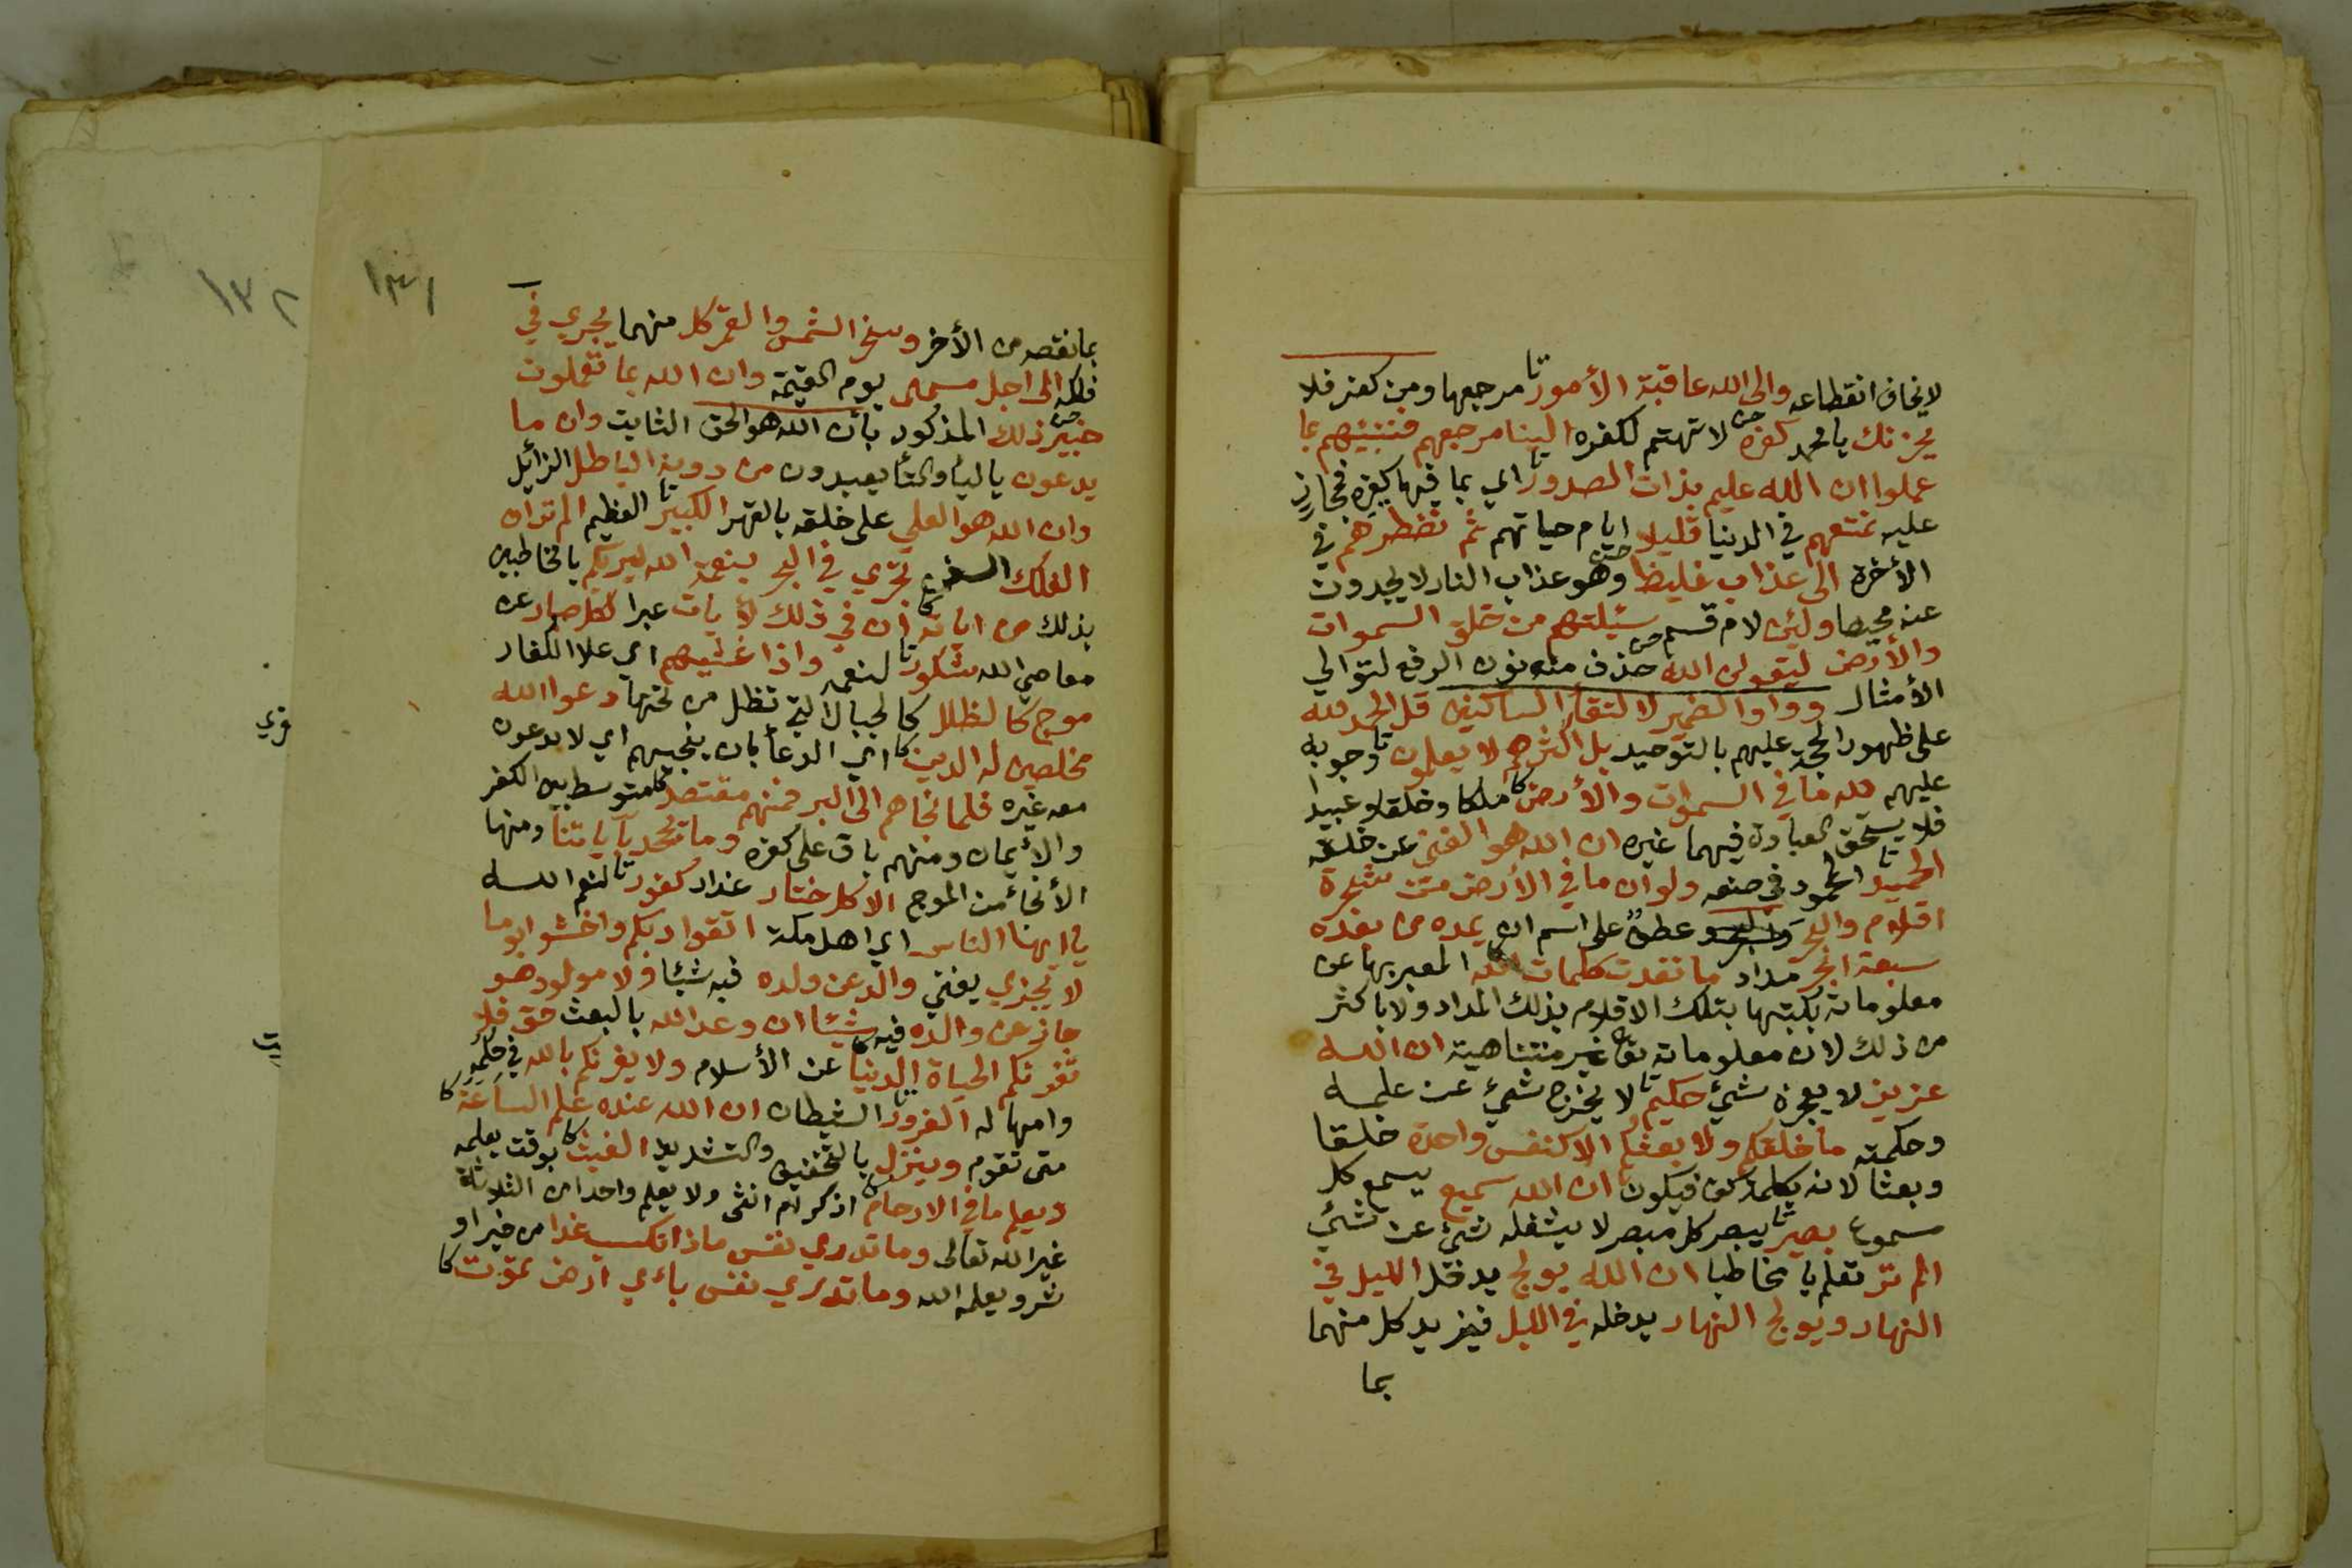 لا يخاف انقطاعه والى الله عاقبة الأمور مرجعها ومن كفر فلا
يحزنك يا محمد كفره لا تهتم لكفره الينا مرجعهم فننبئهم بما
عملوا ان الله عليم بذات الصدور اي بما فيها كغيره فمجازٍ
عليه نمتعهم في الدنيا قليلا ايام حياتهم ثم نضطرهم في
الأخرة الى عذاب غليظ وهو عذاب النار لا يجدون
عنه محيصا ولئن لام قسم سئيلتهم من خلق السموات
والأرض ليقولن الله حذف منه نون الرفع لتوالي
الأمثال وواو الضمير لالتقأ الساكنين قل الحمد لله
على ظهور الحجة عليهم بالتوحيد بل اكثرهم لا يعلمون وجوبه
عليهم لله ما في السموات والأرض ملكا وخلقا وعبيدا
فلا يستحق العبادة فيهما غيره ان الله هو الغني عن خلقه
الحميد المحمود في صنعه ولو ان ما في الأرض من شجرة
اقلام والبحر عطف على اسم ان يمده من بعده
سبعة ابحر مداد ما نفدت كلمات الله المعبر بها عن
معلوماته بكتبها بتلك الاقلام بذلك المداد ولا باكثر
من ذلك لان معلوماته تعا غير متناهية ان الله
عزيز لا يعجزه شيئ حكيم لا يخرج شيئ عن علمه
وحكمته ما خلقكم ولا بعثكم الا كنفس واحدة خلقا
وبعثا لانه بكلمة كن فيكون ان الله سميع يسمع كل
مسموع بصير يبصر كل مبصر لا يشغله شيئ عن شيئ
الم تر تعلم يا مخاطبا ان الله يولج يدخل الليل في
النهار ويولج النهار يدخله في الليل فيزيد كل منهما
بما
١٣١
١٣٢
بما نقصه من الأخر وسخر الشمس والقمر كل منهما يجري في
فلكه الى اجل مسمى يوم القيمة وان الله بما تعملون
خبير ذلك المذكور بأن الله هو الحق الثابت وان ما
يدعون باليأ والتأ يعبدون من دونه الباطل الزائيل
وان الله هو العلي على خلقه بالقهر الكبير العظيم الم تر ان
الفلك السفن تجري في البحر بنعمة الله ليريكم يا مخاطبين
بذلك من اياته ان في ذلك لأيات عبرا لكل صبار عن
معاصي الله شكور لنعمه واذا غشيهم اي علا الكفار
موج كالظلل كالجبال التي تظل من تحتها دعوا الله
مخلصين له الدين اي الدعأ بان ينجيهم اي لا يدعون
معه غيره فلما نجاهم الى البر فمنهم مقتصد متوسط بين الكفر
والأيمان ومنهم باق على كفره وما يجحد بآياتنا ومنها
الأنجأ من الموج الا كل ختار غدار كفور لنعم الله
يا ايها الناس اي اهل مكة اتقوا ربكم واخشوا يوما
لا يجزي يغني والد عن ولده فيه شيئا ولا مولود هو
جاز عن والده فيه شيئا ان وعد الله بالبعث حق فلا
تغرنكم الحياة الدنيا عن الأسلام ولا يغرنكم بالله في حلمه
وامهاله الغرور الشيطان ان الله عنده علم الساعة
متى تقوم وينزل بالتخفيف والتشديد الغيث بوقت يعلمه
ويعلم ما في الارحام اذكر ام انثى ولا يعلم واحدا من الثلاثة
غير الله تعالى وما تدري نفس ماذا تكسب غدا من خير او
شر ويعلمه الله وما تدري نفس باءي ارض تموت